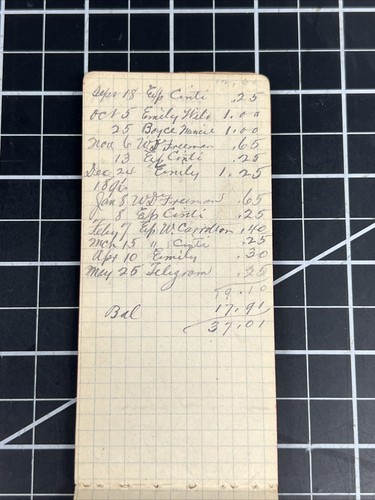 Sept 18 Exp Cinti .25
Oct 5 Emily Wilo 1.00
25 Boyce 1.00
Nov 6 W D Freeman .65
13 Exp Cinti .25
Dec 24 Emily 1.25
1896
Jan 8 W D Freeman .65
8 Exp Cinti .25
Feby 7 Exp W. Carrollton .40
Mch 15 " Cinti .25
Apr 10 Emily .30
May 25 Telegram .25
19.10
Bal 17.91
37.01